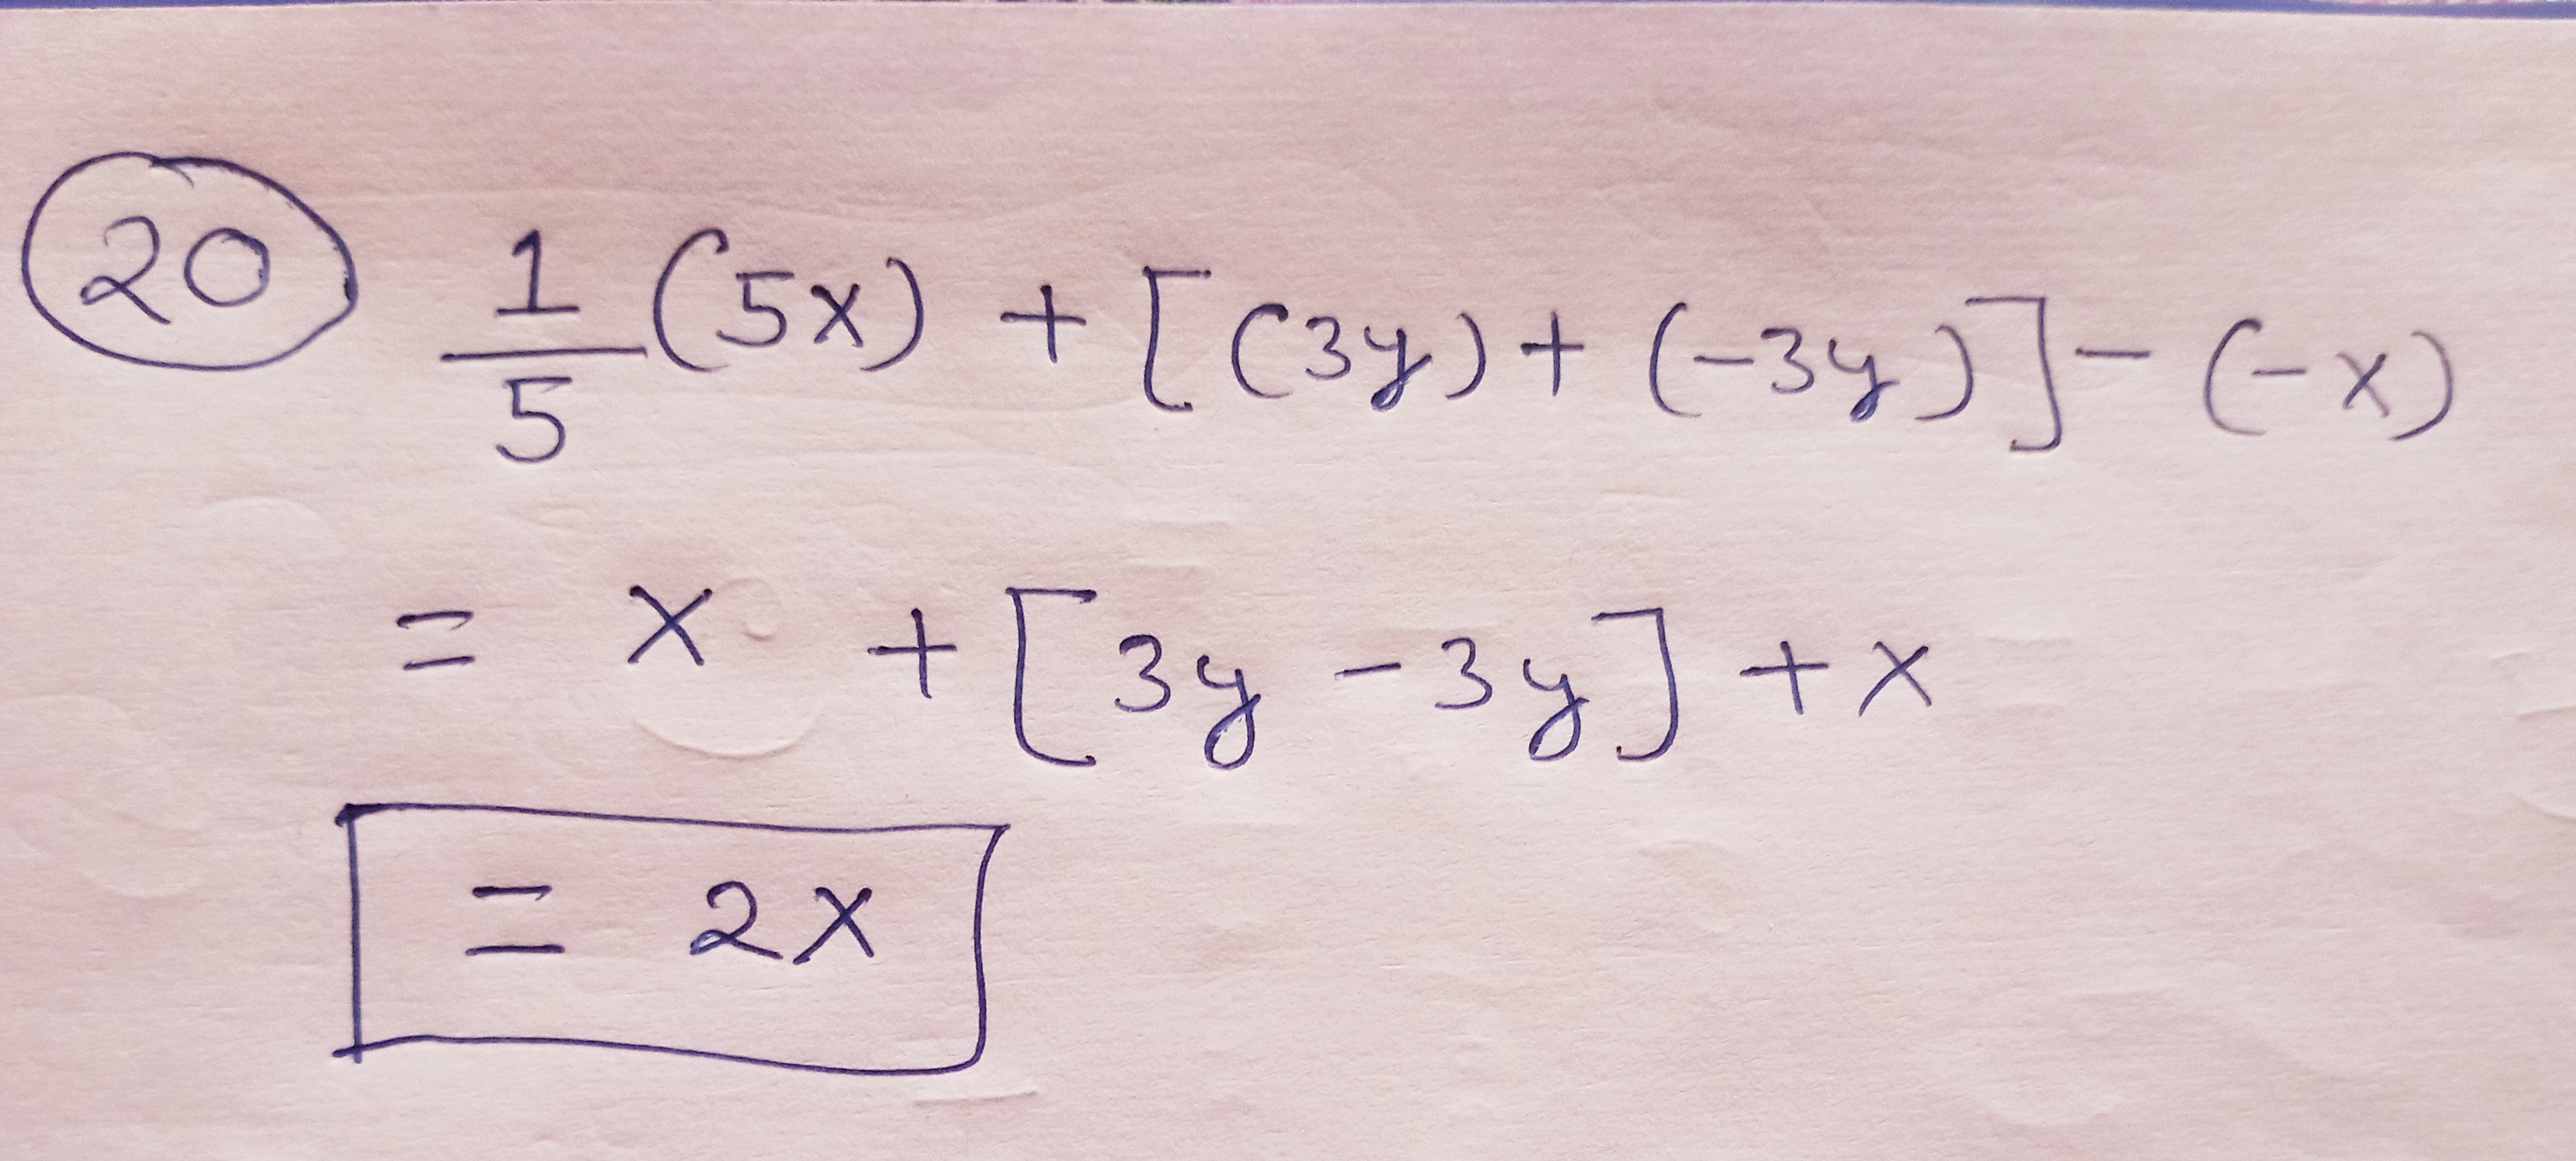 20 1/5 (5x) + [(3y) + (-3y)] - (-x)
= x + [3y - 3y] + x
= 2x